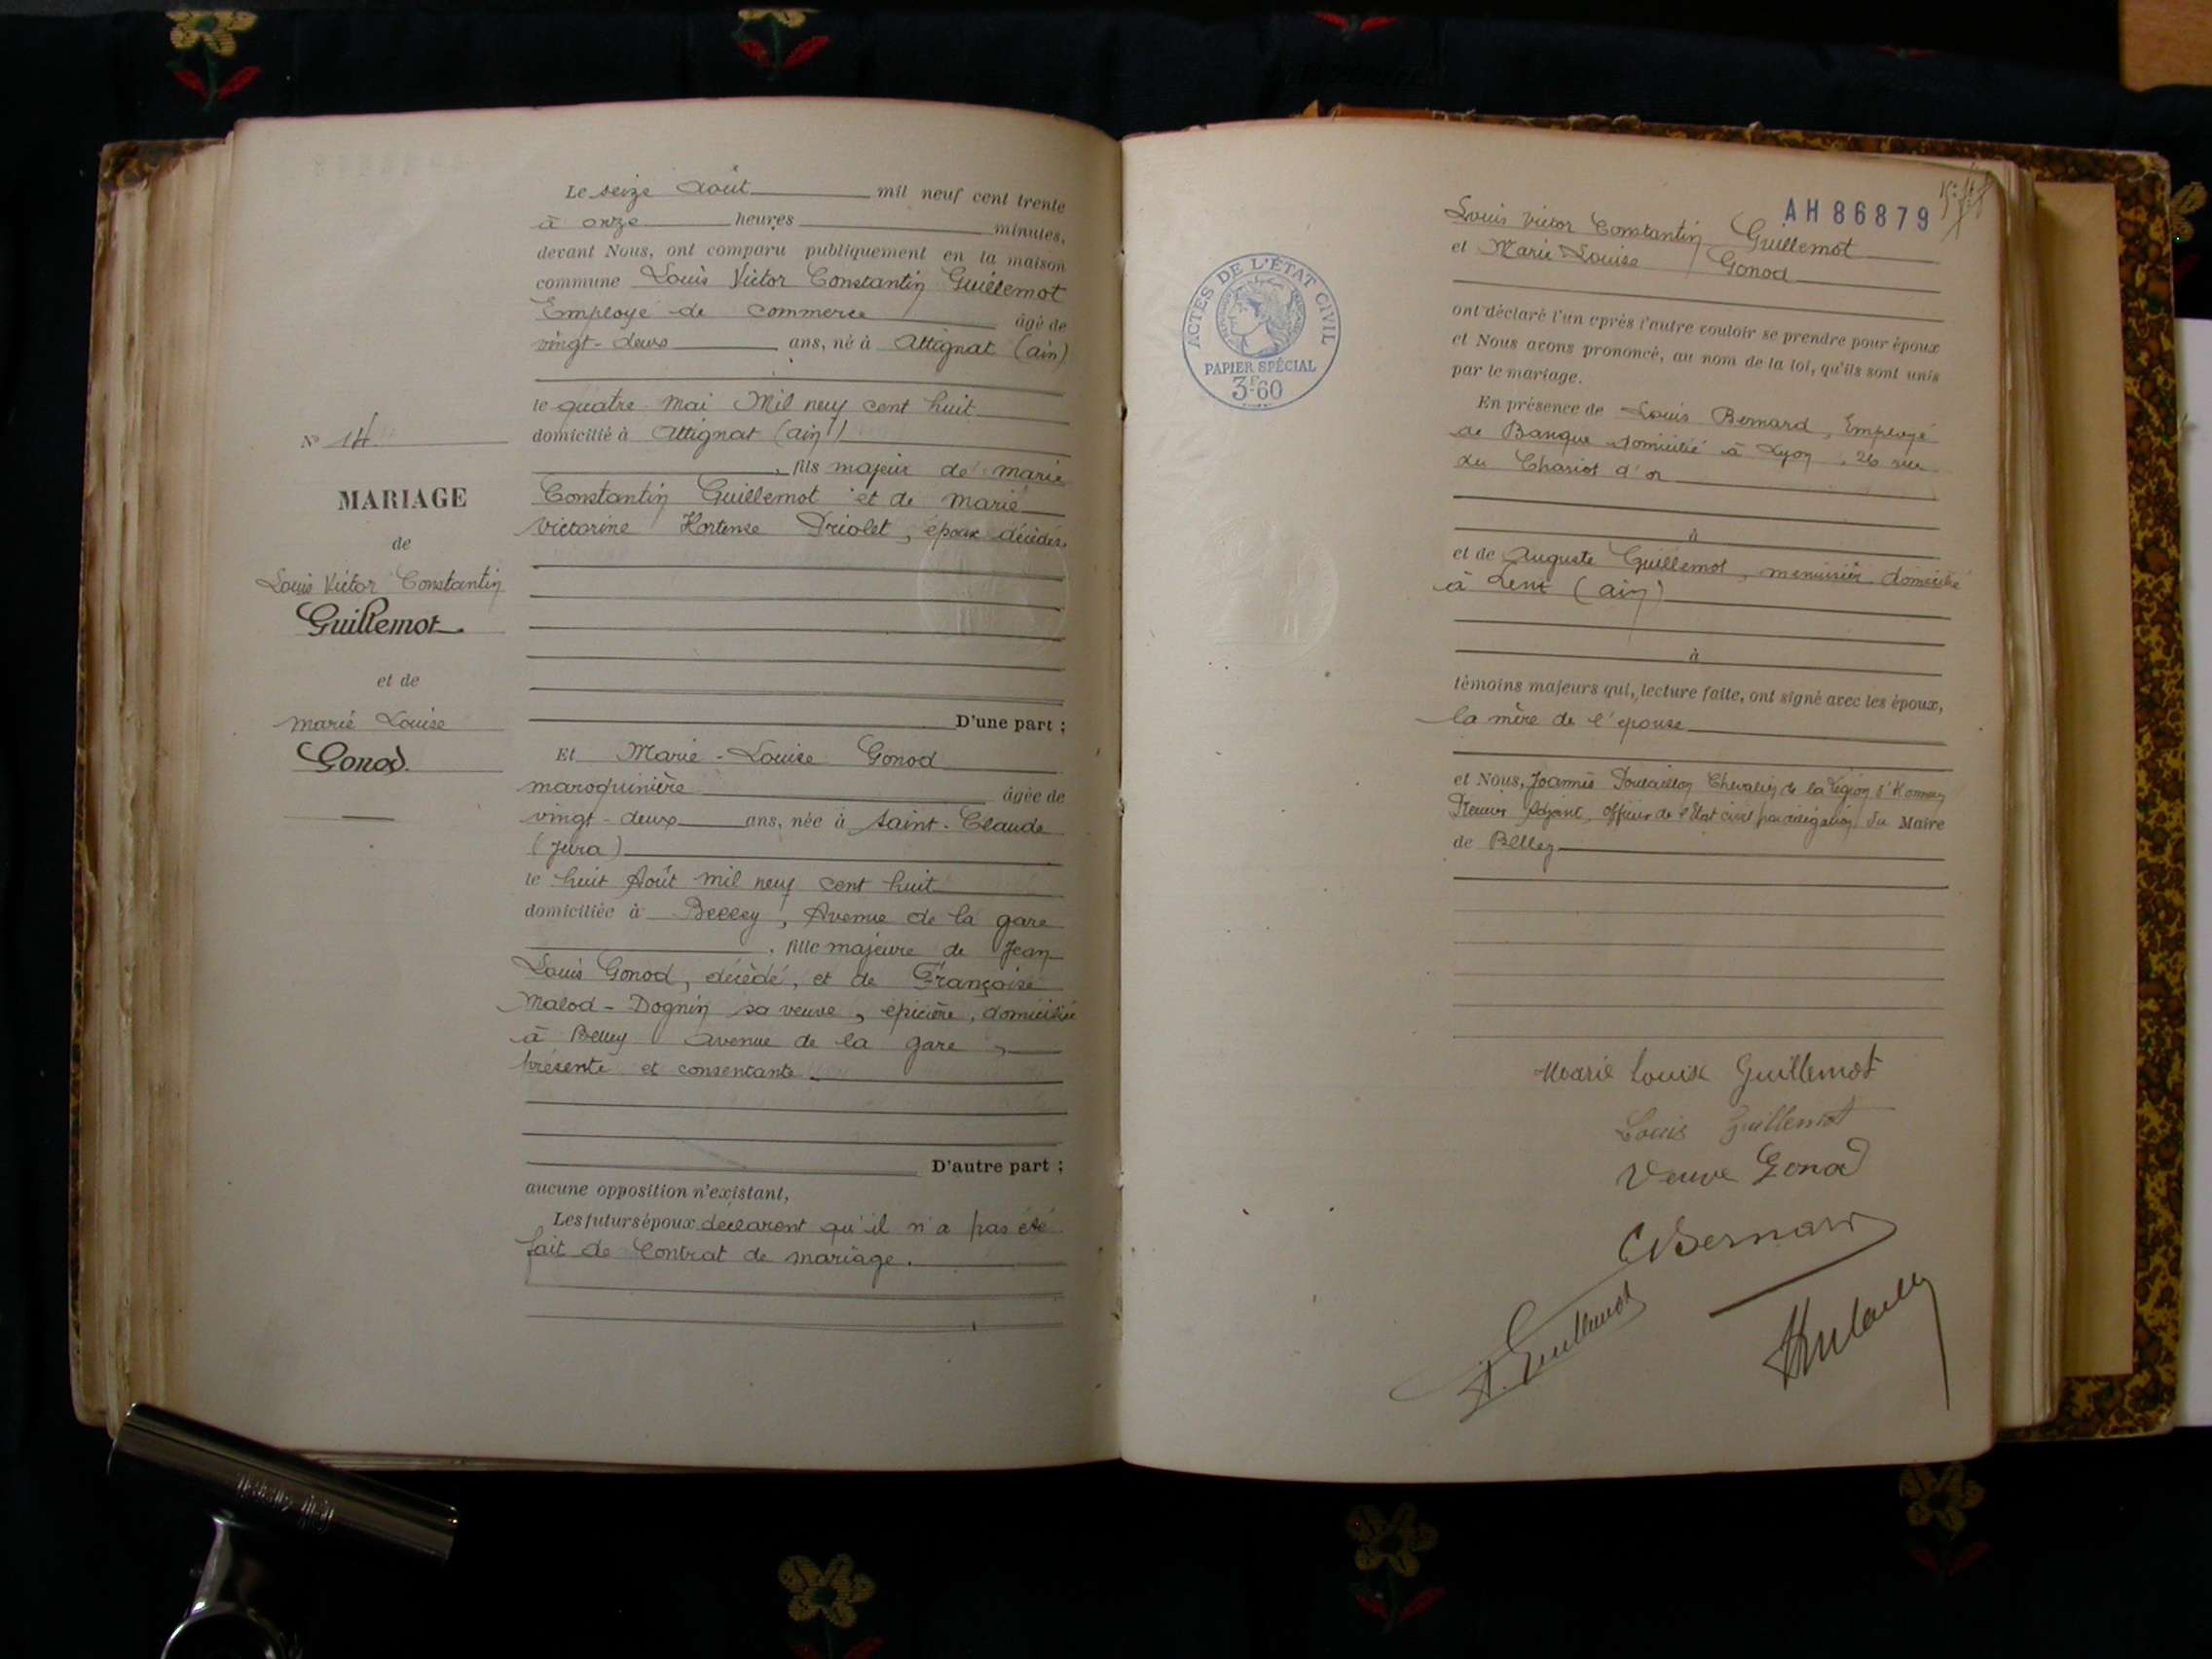 Le seize Août mil neuf cent trente
à onze heures minutes,
devant Nous, ont comparu publiquement en la maison
commune Louis Victor Constantin Guillemot
Employé de commerce âgé de
vingt-deux ans, né à Attignat (Ain)
le quatre Mai Mil neuf cent huit
domicilié à Attignat (Ain)
, fils majeur de Marie
Constantin Guillemot et de Marie
Victorine Hortense Driolet, époux décédés
D'une part ;
N° 14
MARIAGE
de
Louis Victor Constantin
Guillemot
et de
Marie Louise
Gonod
Et Marie-Louise Gonod
maroquinière âgée de
vingt-deux ans, née à Saint-Claude
(Jura)
le huit Août mil neuf cent huit
domiciliée à Belley, Avenue de la gare
, fille majeure de Jean
Louis Gonod, décédé, et de Françoise
Malod-Dognin sa veuve, épicière, domiciliée
à Belley avenue de la gare,
présente et consentante.
D'autre part ;
aucune opposition n'existant,
Les futurs époux déclarent qu'il n'a pas été
fait de Contrat de mariage.
AH 86879
ACTES DE L'ÉTAT CIVIL
PAPIER SPÉCIAL
3F60
Louis Victor Constantin Guillemot
et Marie-Louise Gonod
ont déclaré l'un après l'autre vouloir se prendre pour époux
et Nous avons prononcé, au nom de la loi, qu'ils sont unis
par le mariage.
En présence de Louis Bernard, Employé
de Banque domicilié à Lyon, 26 rue
du Chariot d'or
à
et de Auguste Guillemot, menuisier domicilié
à Lent (Ain)
à
témoins majeurs qui, lecture faite, ont signé avec les époux,
la mère de l'épouse
et Nous, Joannès Chevalier de la Légion d'Honneur
Adjoint, officier de l'État civil par délégation du Maire
de Belley
Marie Louise Guillemot
Louis Guillemot
Veuve Gonod
Bernard
A. Guillemot